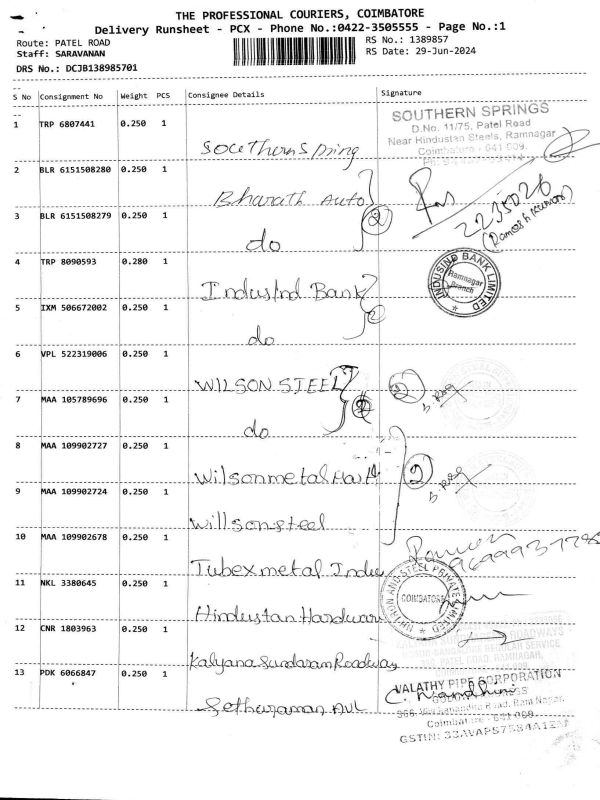 THE PROFESSIONAL COURIERS, COIMBATORE
Delivery Runsheet - PCX - Phone No.:0422-3505555 - Page No.:1
Route: PATEL ROAD
RS No.: 1389857
Staff: SARAVANAN
RS Date: 29-Jun-2024
DRS No.: DCJB138985701
S No Consignment No Weight PCS Consignee Details Signature
1 TRP 6807441 0.250 1
Southern Spring
SOUTHERN SPRINGS
D.No. 11/75, Patel Road
Near Hindustan Steels, Ramnagar
Coimbatore - 641 009.
2 BLR 6151508280 0.250 1
Bharath Auto
2
2235026
(Ramesh Kumar)
3 BLR 6151508279 0.250 1
do
4 TRP 8090593 0.280 1
IndusInd Bank
2
INDUSIND BANK LIMITED
Ramnagar
Branch
5 IXM 506672002 0.250 1
do
6 VPL 522319006 0.250 1
WILSON STEEL
2
7 MAA 105789696 0.250 1
do
8 MAA 109902727 0.250 1
Wilson metal
2
9 MAA 109902724 0.250 1
Willson steel
10 MAA 109902678 0.250 1
Tubex metal India
COIMBATORE
11 NKL 3380645 0.250 1
Hindustan Hardwar
12 CNR 1803963 0.250 1
Kalyana Sundaram Roadway
13 PDK 6066847 0.250 1
Sethuraman
VALATHY PIPE CORPORATION
C. Nandhini